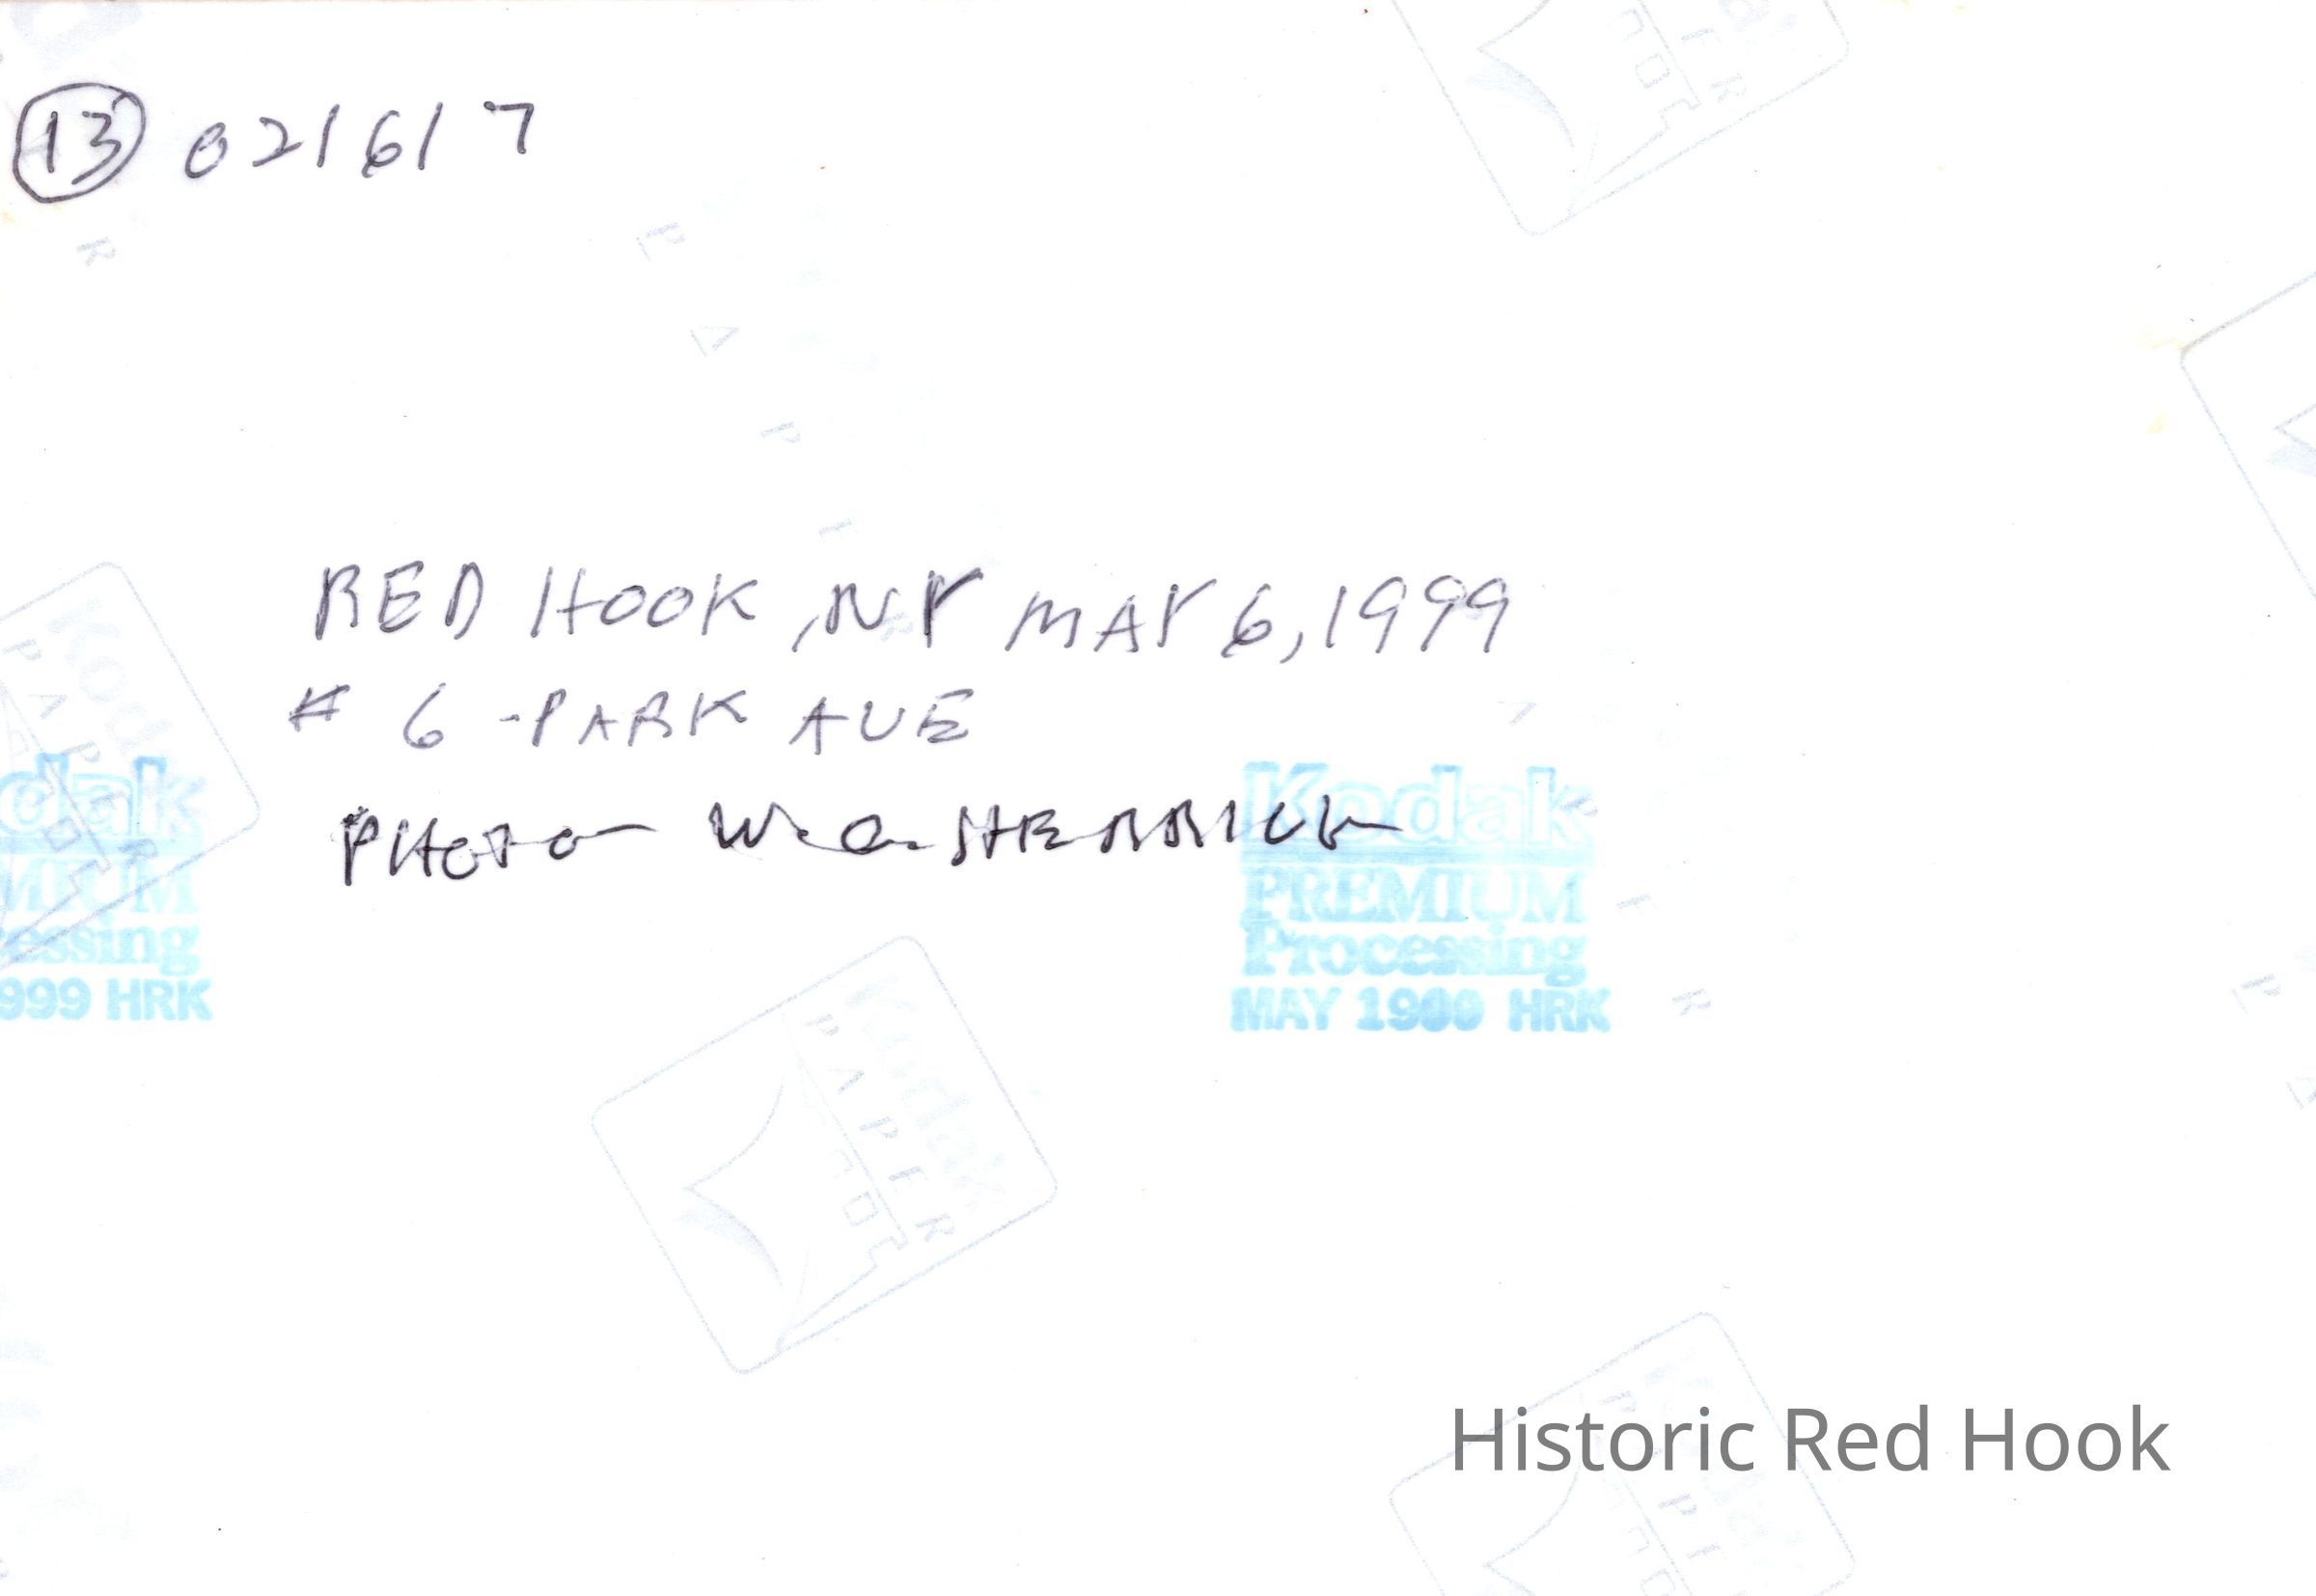 13 021617
RED HOOK, NY MAY 6, 1999
# 6 - PARK AVE
PHOTO - W. O. HERRICK
Kodak
PREMIUM
Processing
MAY 1999 HRK
dak
MIUM
essing
999 HRK
Kodak
PAPER
Kodak
PAPER
Historic Red Hook